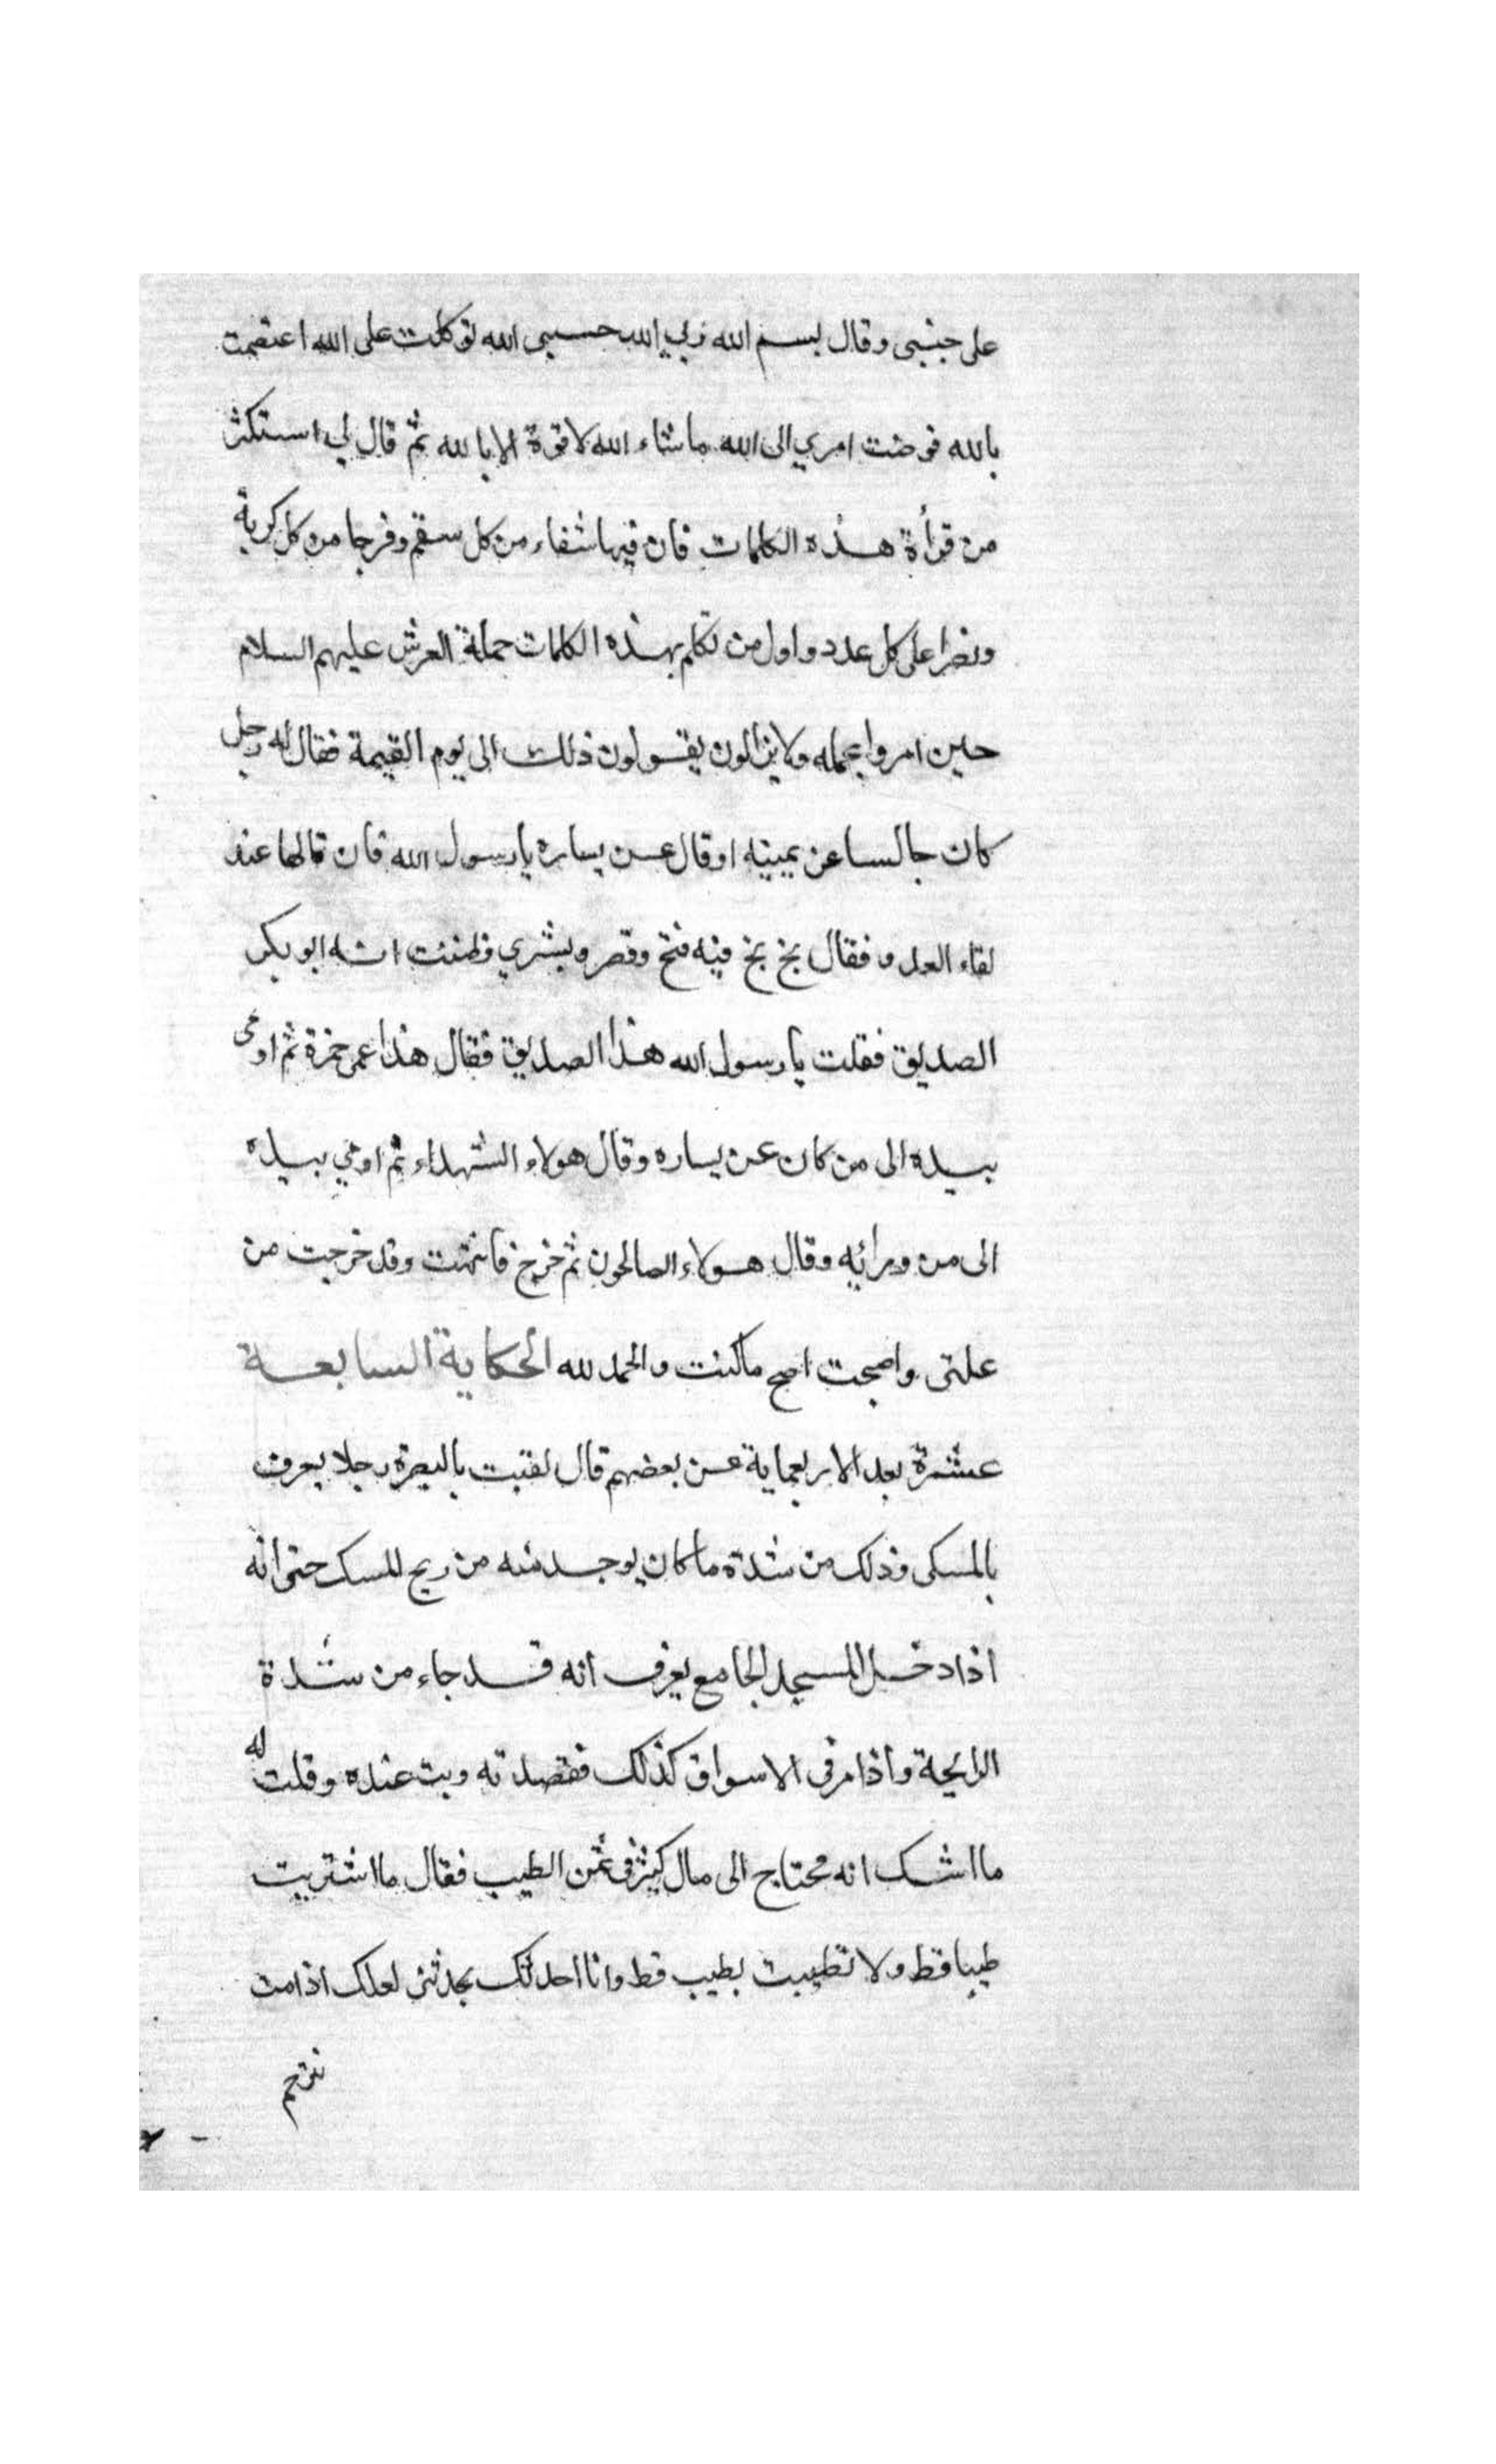 على جنبى وقال بسم الله ربي الله حسبى الله توكلت على الله اعتصمت
بالله فوضت امري الى الله ما شاء الله لا قوة الا بالله ثم قال لي استكثر
من قرأة هذه الكلمات فان فيها شفاء من كل سقم وفرجا من كل كربة
ونصرا على كل عدد واول من تكلم بهذه الكلمات حملة العرش عليهم السلام
حين امروا بحمله ولا يزالون يقولون ذلك الى يوم القيمة فقال له رجل
كان جالسا عن يمينه او قال عن يساره يا رسول الله فان قالها عند
لقاء العدو فقال بخ بخ فيه فتح ونصر وبشري فظننت انه ابو بكر
الصديق فقلت يا رسول الله هذا الصديق فقال هذا عمى حمزة ثم اومى
بيده الى من كان عن يساره وقال هولاء الشهداء ثم اومي بيده
الى من ورائه وقال هولاء الصالحون ثم خرج فانتبهت وقد خرجت من
علتى واصبحت اصح ما كنت والحمد لله الحكاية السابعة
عشرة بعد الاربعماية عن بعضهم قال لقيت بالبصرة رجلا يعرف
بالمسكى وذلك من شدة ما كان يوجد منه من ريح المسك حتى انه
اذا دخل المسجد الجامع يعرف انه قد جاء من شدة
الرايحة واذا مر فى الاسواق كذلك فقصدته وبت عنده وقلت له
ما اشك انه محتاج الى مال كثير فى ثمن الطيب فقال ما اشتريت
طيبا قط ولا تطيبت بطيب قط وانا احدثك بحديثى لعلك اذا مت
تترحم